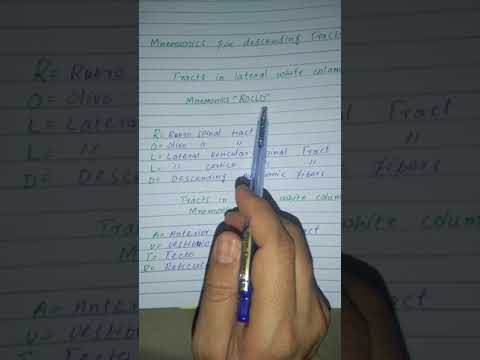 Mnemonics for descending Tracts
Tracts in lateral white colum
Mnemonics "ROLLD"
R= Rubro spinal tract
O= Olivo " "
L= Lateral spinal Tract
L= " cortico " "
D= Descending fibers
Tracts in white colu
Mnemon
A= Anterior ract
V= Vestibulo
T= Tecto
R= Reticul